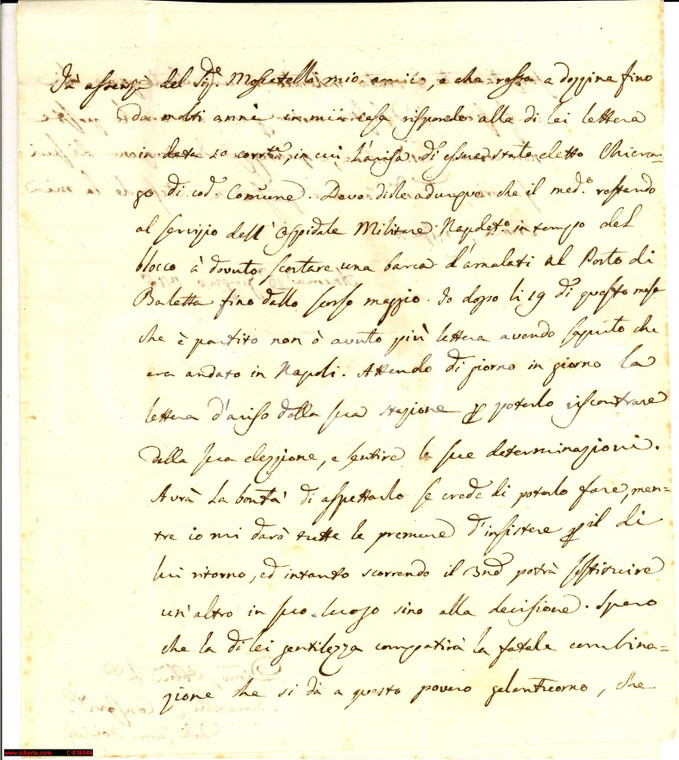 In assenza del Sig.e Moscatelli mio amico, e che resta a dozzina fino
da molti anni in mia casa rispondo alla di lei lettera
in data 20 corr.te, in cui l'avisa di essere stato eletto Chirur=
go di cod.a Comune. Devo dirle adunque che il med.o restando
al servizio dell'Ospidale Militare Napolet.o in tempo del
blocco à dovuto scortare una barca d'amalati al Porto di
Barletta fino dallo scorso maggio. Io dopo li 19 di questo mese
che è partito non ò avuto più lettera avendo saputo che
era andato in Napoli. Attendo di giorno in giorno la
lettera d'aviso della sua stazione p poterlo riscontrare
della sua elezzione, e sentire le sue determinazioni.
Avrà la bontà di aspettarlo se crede di poterlo fare, men=
tre io mi darò tutte le premure d'insistere p il di
lui ritorno, ed intanto scorrendo il 3nd potrà sostituire
un'altro in suo luogo sino alla decisione. Spero
che la di lei gentilezza compatirà la fatale combina=
zione che si dà a questo povero galantuomo, che
www.lcharta.com C-036586